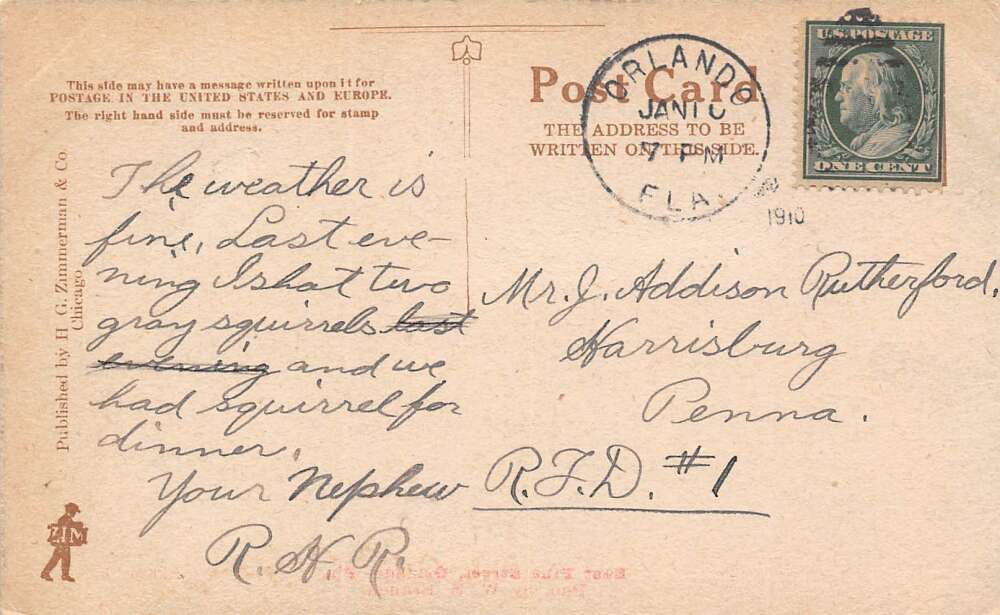 This side may have a message written upon it for
POSTAGE IN THE UNITED STATES AND EUROPE.
The right hand side must be reserved for stamp
and address.
Post Card
THE ADDRESS TO BE
WRITTEN ON THIS SIDE.
ORLANDO
JAN 10
7 PM
FLA.
1910
U.S. POSTAGE
ONE CENT
Published by H. G. Zimmerman & Co.
Chicago
The weather is
fine. Last eve-
ning I shot two
gray squirrels last
evening and we
had squirrel for
dinner.
Your Nephew
R. H. R.
Mr. J. Addison Rutherford,
Harrisburg
Penna.
R.F.D. #1
ZIM
East Pine Street,